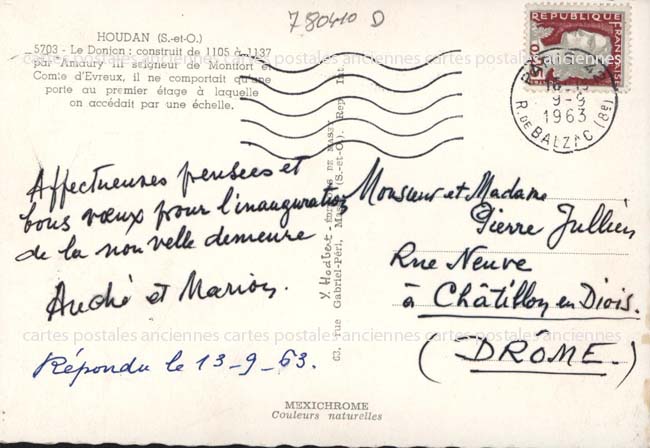 780410 D
HOUDAN (S.-et-O.)
5703 - Le Donjon : construit de 1105 à 1137
par Amaury III Seigneur de Montfort et
Comte d'Evreux, il ne comportait qu'une
porte au premier étage à laquelle
on accédait par une échelle.
REPUBLIQUE FRANÇAISE
0,25
9-9
1963
R. DE BALZAC (8e)
cartes postales anciennes cartes postales anciennes cartes postales anciennes
Affectueuses pensées et
bons vœux pour l'inauguration
de la nouvelle demeure
André et Marion.
Répondu le 13-9-63.
Monsieur et Madame
Pierre Jullien
Rue Neuve
à Châtillon en Diois.
(DRÔME.)
63, rue Gabriel-Péri, (S.-et-O.) Rep. Int.
cartes postales anciennes cartes postales anciennes cartes postales anciennes
MEXICHROME
Couleurs naturelles